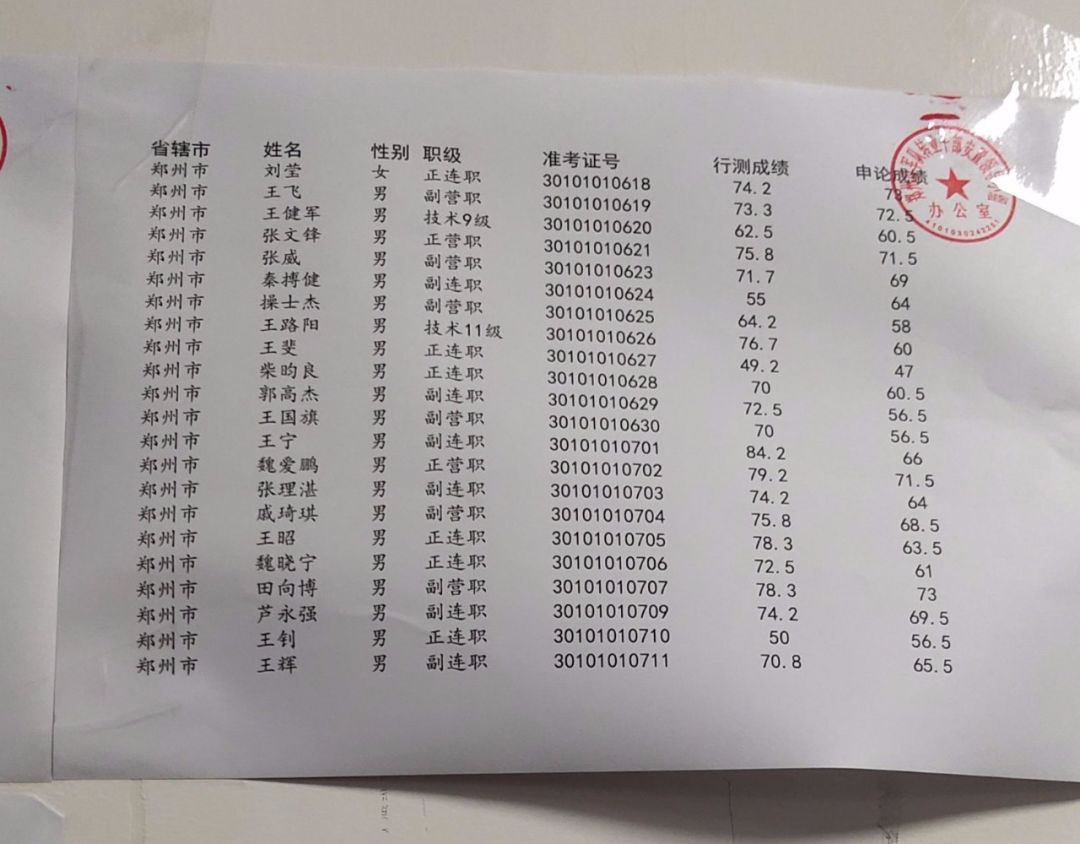 省辖市 姓名 性别 职级 准考证号 行测成绩 申论成绩
郑州市 刘莹 女 正连职 30101010618 74.2 73
郑州市 王飞 男 副营职 30101010619 73.3 72.5
郑州市 王健军 男 技术9级 30101010620 62.5 60.5
郑州市 张文锋 男 正营职 30101010621 75.8 71.5
郑州市 张威 男 副营职 30101010623 71.7 69
郑州市 秦搏健 男 副连职 30101010624 55 64
郑州市 操士杰 男 副营职 30101010625 64.2 58
郑州市 王路阳 男 技术11级 30101010626 76.7 60
郑州市 王斐 男 正连职 30101010627 49.2 47
郑州市 柴昀良 男 正连职 30101010628 70 60.5
郑州市 郭高杰 男 副连职 30101010629 72.5 56.5
郑州市 王国旗 男 副营职 30101010630 70 56.5
郑州市 王宁 男 副连职 30101010701 84.2 66
郑州市 魏爱鹏 男 正营职 30101010702 79.2 71.5
郑州市 张理湛 男 副连职 30101010703 74.2 64
郑州市 戚琦琪 男 副营职 30101010704 75.8 68.5
郑州市 王昭 男 正连职 30101010705 78.3 63.5
郑州市 魏晓宁 男 正连职 30101010706 72.5 61
郑州市 田向博 男 副营职 30101010707 78.3 73
郑州市 芦永强 男 副连职 30101010709 74.2 69.5
郑州市 王钊 男 正连职 30101010710 50 56.5
郑州市 王辉 男 副连职 30101010711 70.8 65.5
办公室